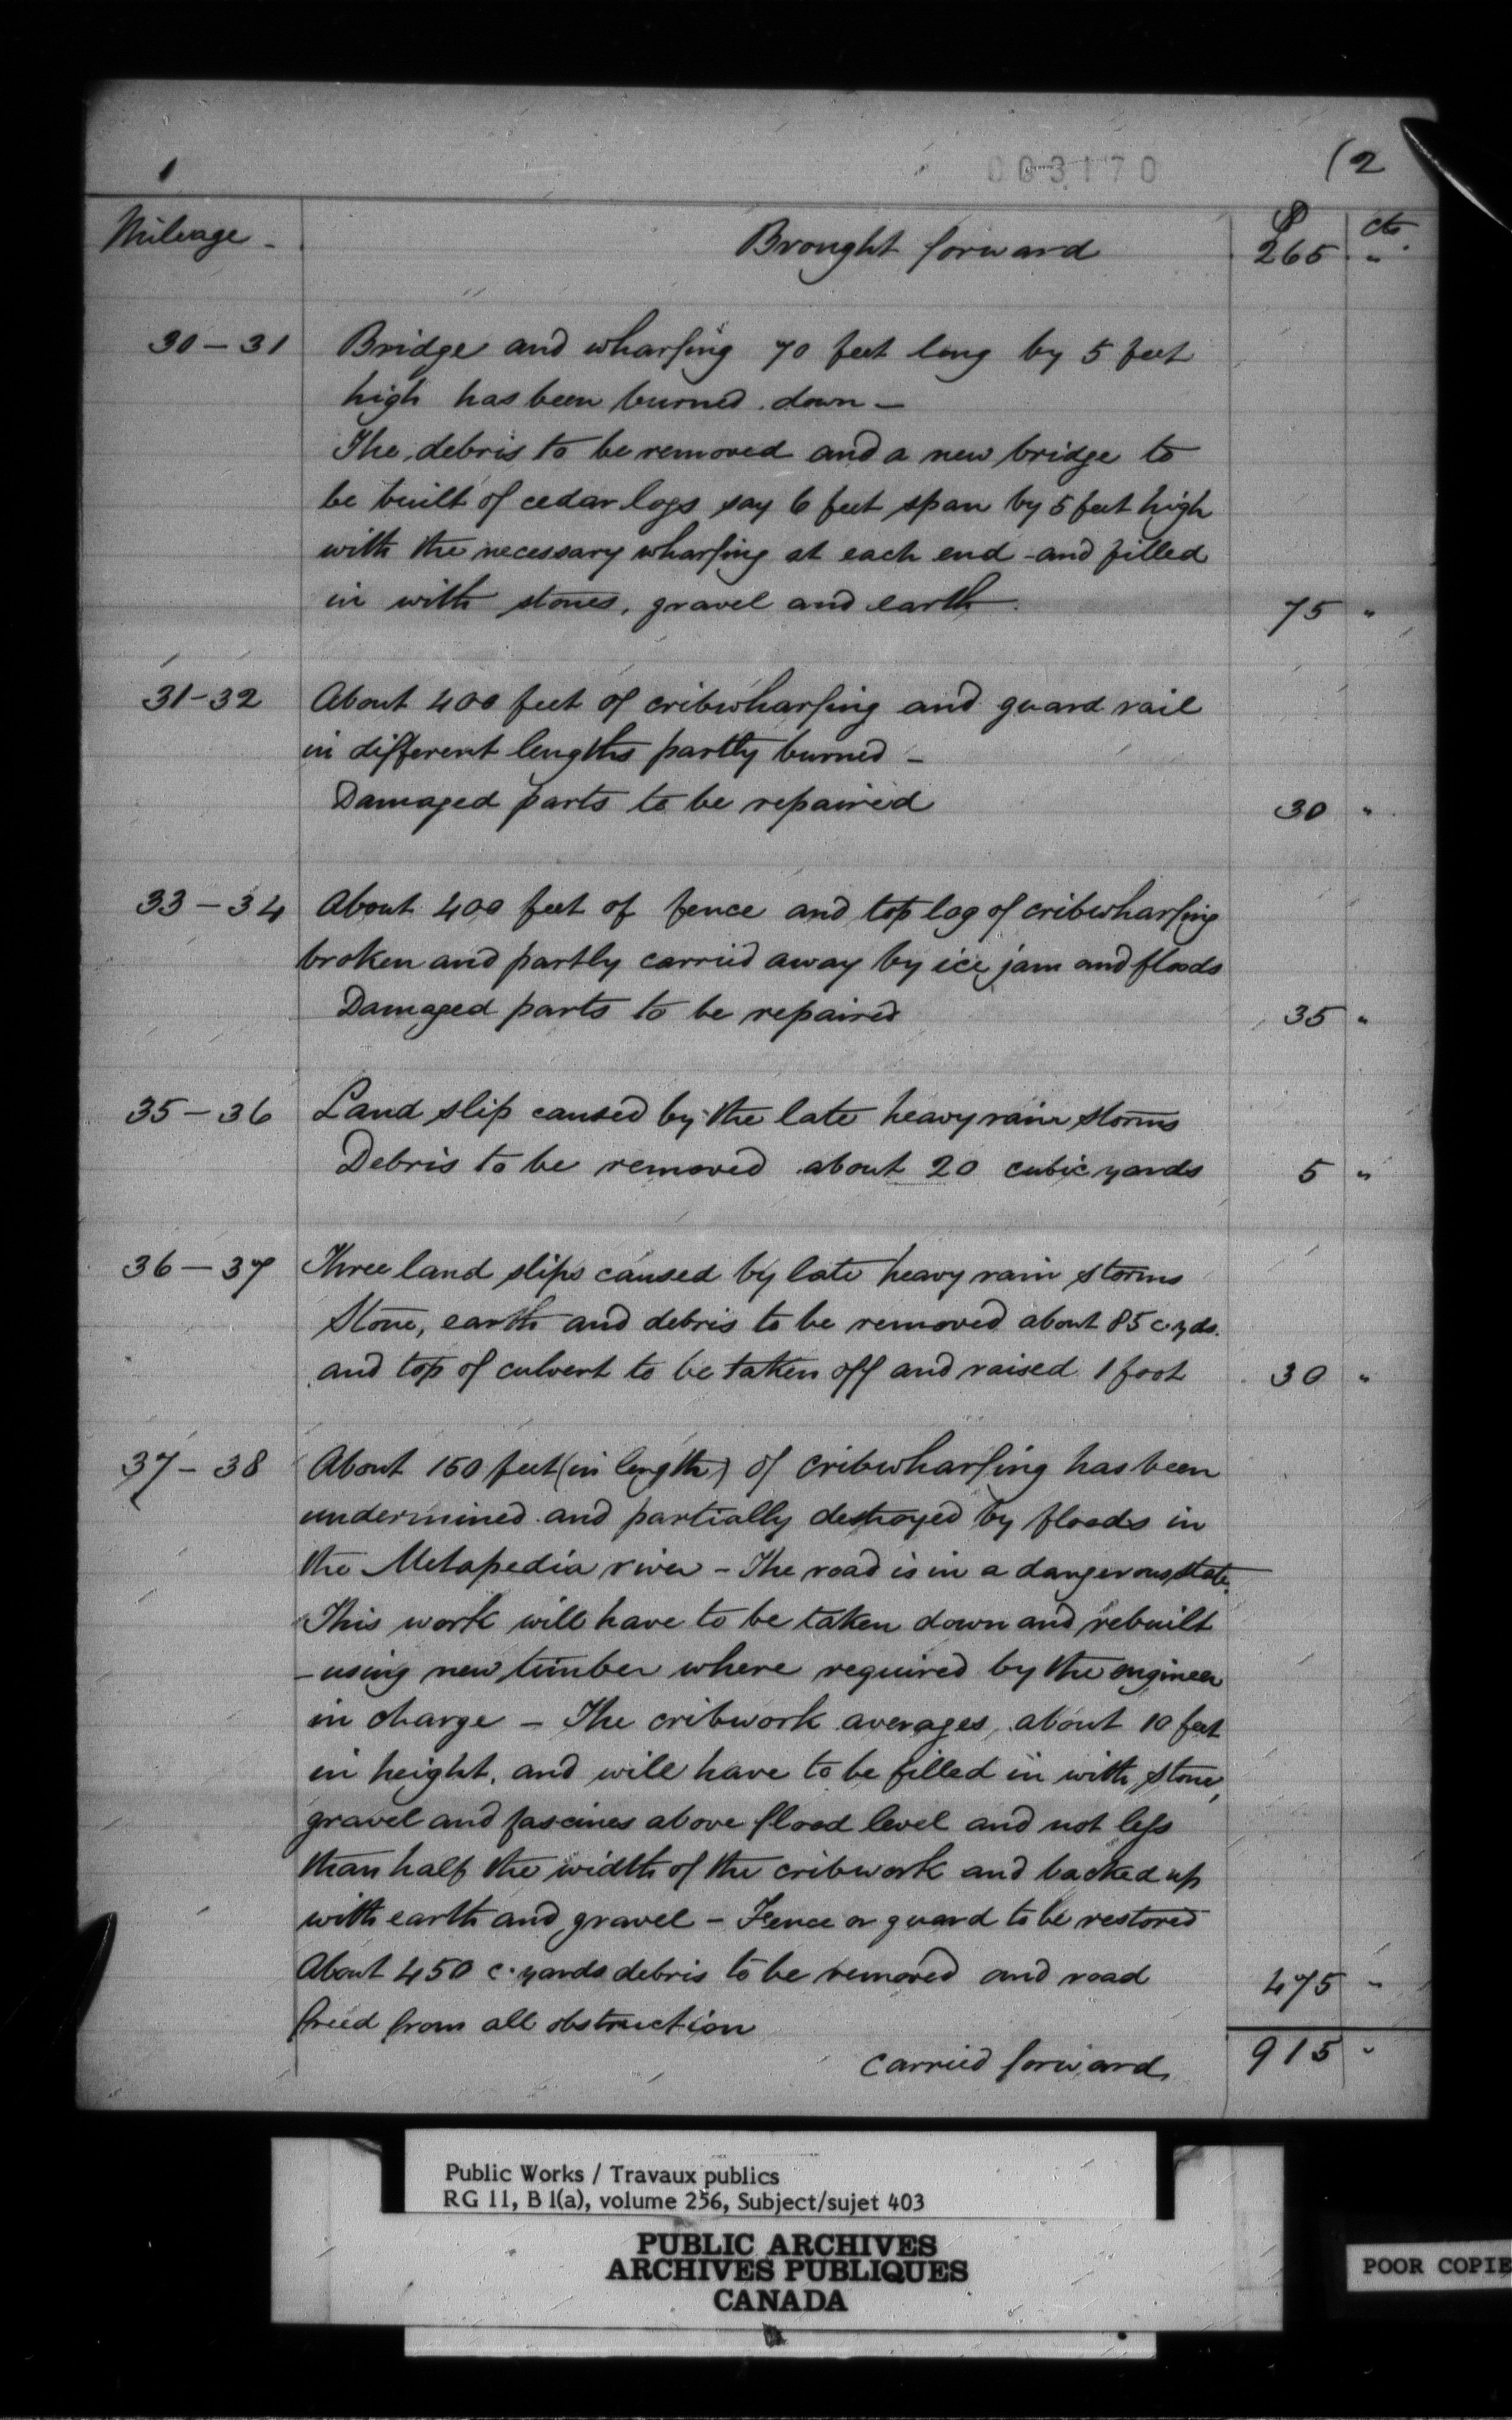 1
003170
(2
Mileage -
Brought forward
$ cts
265 "
30-31 Bridge and wharfing 70 feet long by 5 feet
high has been burned down -
The debris to be removed and a new bridge to
be built of cedar logs say 6 feet span by 5 feet high
with the necessary wharfing at each end - and filled
in with stones, gravel and earth. 75 "
31-32 About 400 feet of cribwharfing and guard rail
in different lengths partly burned -
Damaged parts to be repaired 30 "
33-34 About 400 feet of fence and top log of cribwharfing
broken and partly carried away by ice jam and floods
Damaged parts to be repaired 35 "
35-36 Land slip caused by the late heavy rain storms
Debris to be removed about 20 cubic yards 5 "
36-37 Three land slips caused by late heavy rain storms
Stone, earth and debris to be removed about 85 c.yds.
and top of culvert to be taken off and raised 1 foot 30 "
37-38 About 150 feet (in length) of cribwharfing has been
undermined and partially destroyed by floods in
the Metapedia river - The road is in a dangerous state.
This work will have to be taken down and rebuilt
- using new timber where required by the engineer
in charge - The cribwork averages, about 10 feet
in height, and will have to be filled in with stone,
gravel and fascines above flood level and not less
than half the width of the cribwork and backed up
with earth and gravel - Fence or guard to be restored
About 450 c. yards debris to be removed and road 475 "
freed from all obstruction
Carried forward 915 "
Public Works / Travaux publics
RG 11, B 1(a), volume 256, Subject/sujet 403
PUBLIC ARCHIVES
ARCHIVES PUBLIQUES
CANADA
POOR COPIE